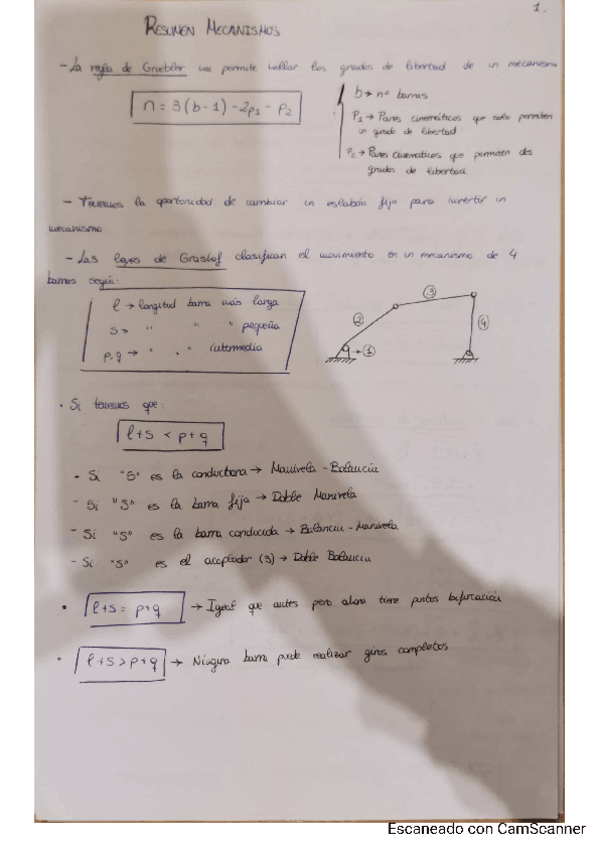 1.
RESUMEN MECANISMOS
- La regla de Gruebler nos permite hallar los grados de libertad de un mecanismo
n = 3(b-1) - 2p1 - p2
b → nº barras
P1 → Pares cinemáticos que solo permiten
un grado de libertad
P2 → Pares Cinemáticos que permiten dos
grados de libertad
- Tenemos la oportunidad de cambiar un eslabón fijo para invertir un
mecanismo
- Las leyes de Grashof clasifican el movimiento en un mecanismo de 4
barras según:
l → longitud barra más larga
s → " " " pequeña
p,q → " " " intermedia
2
3
4
→ 1
· Si tenemos que:
l+s < p+q
· Si "S" es la conductora → Manivela - Balancín
- Si "S" es la barra fija → Doble Manivela
- Si "S" es la barra conducida → Balancín - Manivela
- Si "S" es el acoplador (3) → Doble Balancín
· l+s = p+q → Igual que antes pero ahora tiene puntos bifurcación
· l+s > p+q → Ninguna barra puede realizar giros completos
Escaneado con CamScanner